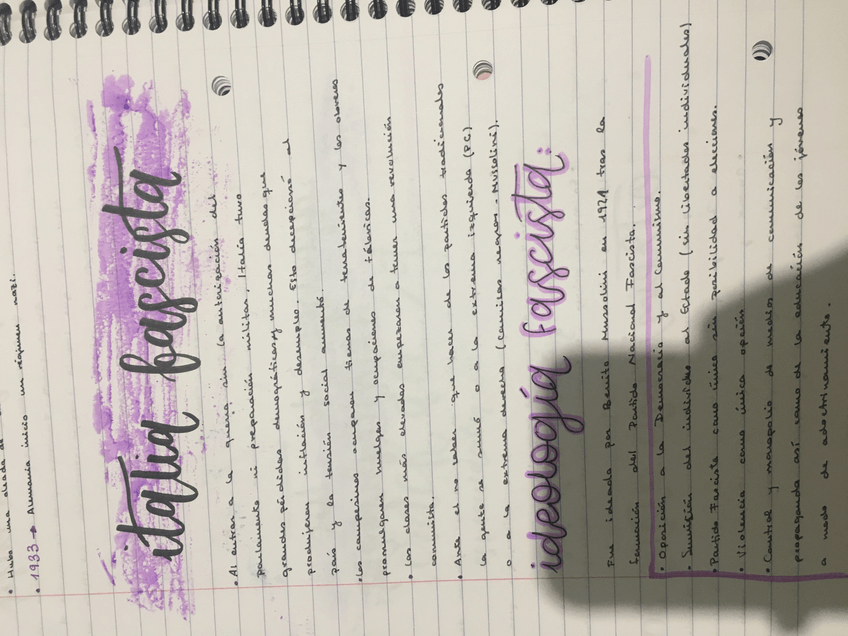 • Hubo una
• 1933 → Alemania inicio un régimen nazi.
italia fascista
• Al entrar a la guerra sin la autorización del
Parlamento ni preparación militar. Italia tuvo
grandes pérdidas demográficas y muchas deudas que
produjeron inflación y desempleo. Esto decepcionó al
país y la tensión social aumentó.
• Los campesinos ocuparon tierras de terratenientes y los obreros
promulguen huelgas y ocupaciones de fábricas.
• Las clases más elevadas empezaron a temer una revolución
comunista.
• Ante el no saber que hacer de los partidos tradicionales
la gente se sumó o a la extrema izquierda (P.C.)
o a la extrema derecha (camisas negras - Mussolini).
ideología fascista:
Fue ideada por Benito Mussolini en 1921 tras la
formación del Partido Nacional Fascista.
• Oposición a la Democracia y al Comunismo.
• Sumisión del individuo al Estado (sin libertades individuales)
• Partido Fascista como único sin posibilidad a elecciones.
• Violencia como única opción
• Control y monopolio de medios de comunicación y
propaganda así como de la educación de los jóvenes
a modo de adoctrinamiento.